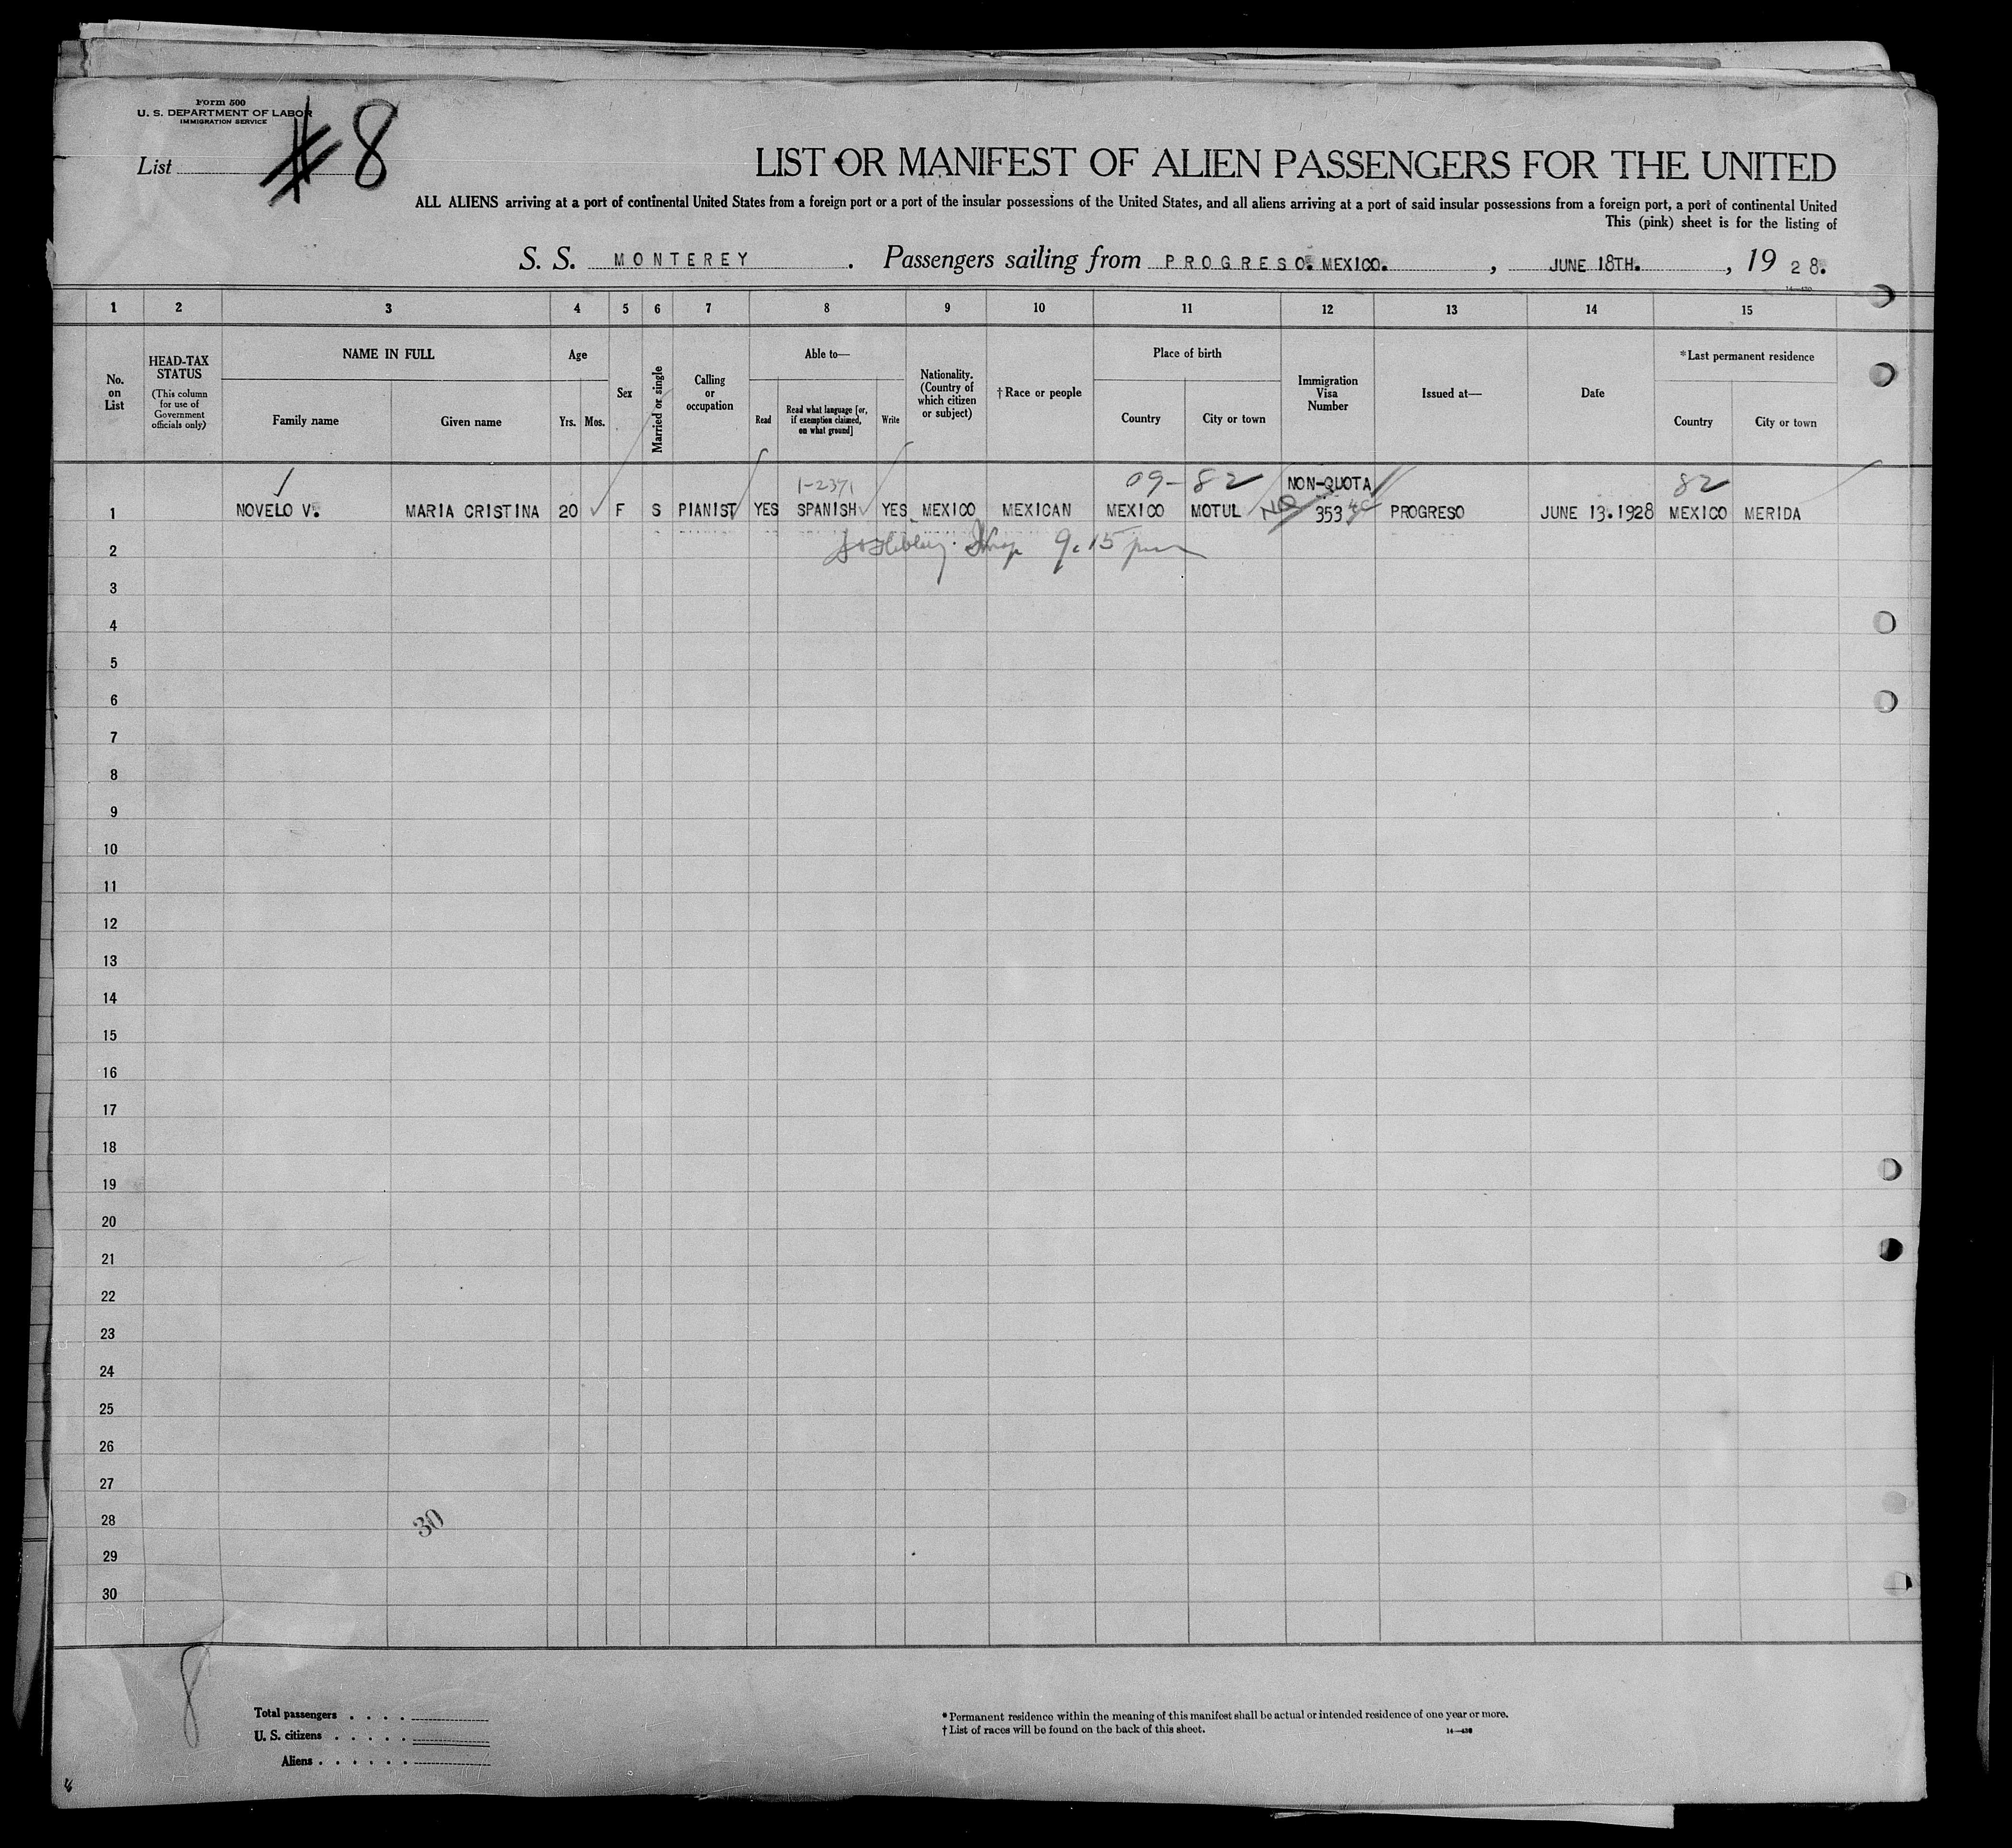 Form 500
U. S. DEPARTMENT OF LABOR
IMMIGRATION SERVICE
List # 8
LIST OR MANIFEST OF ALIEN PASSENGERS FOR THE UNITED
ALL ALIENS arriving at a port of continental United States from a foreign port or a port of the insular possessions of the United States, and all aliens arriving at a port of said insular possessions from a foreign port, a port of continental United
This (pink) sheet is for the listing of
S. S. MONTEREY . Passengers sailing from PROGRESO. MEXICO. , JUNE 18TH. , 19 28.
1 2 3 4 5 6 7 8 9 10 11 12 13 14 15
No. on List
HEAD-TAX STATUS
(This column for use of Government officials only)
NAME IN FULL
Family name Given name
Age
Yrs. Mos.
Sex
Married or single
Calling or occupation
Able to—
Read
Read what language [or, if exemption claimed, on what ground]
Write
Nationality. (Country of which citizen or subject)
†Race or people
Place of birth
Country City or town
Immigration Visa Number
Issued at—
Date
*Last permanent residence
Country City or town
1-2371 09- 82 NON-QUOTA 82
1 NOVELO V. MARIA CRISTINA 20 F S PIANIST YES SPANISH YES MEXICO MEXICAN MEXICO MOTUL NQ 353 PROGRESO JUNE 13.1928 MEXICO MERIDA
2 9.15 pm
3
4
5
6
7
8
9
10
11
12
13
14
15
16
17
18
19
20
21
22
23
24
25
26
27
28 30
29
30
8
Total passengers . . . .
U. S. citizens . . . . .
Aliens . . . . . .
*Permanent residence within the meaning of this manifest shall be actual or intended residence of one year or more.
†List of races will be found on the back of this sheet.
14—430